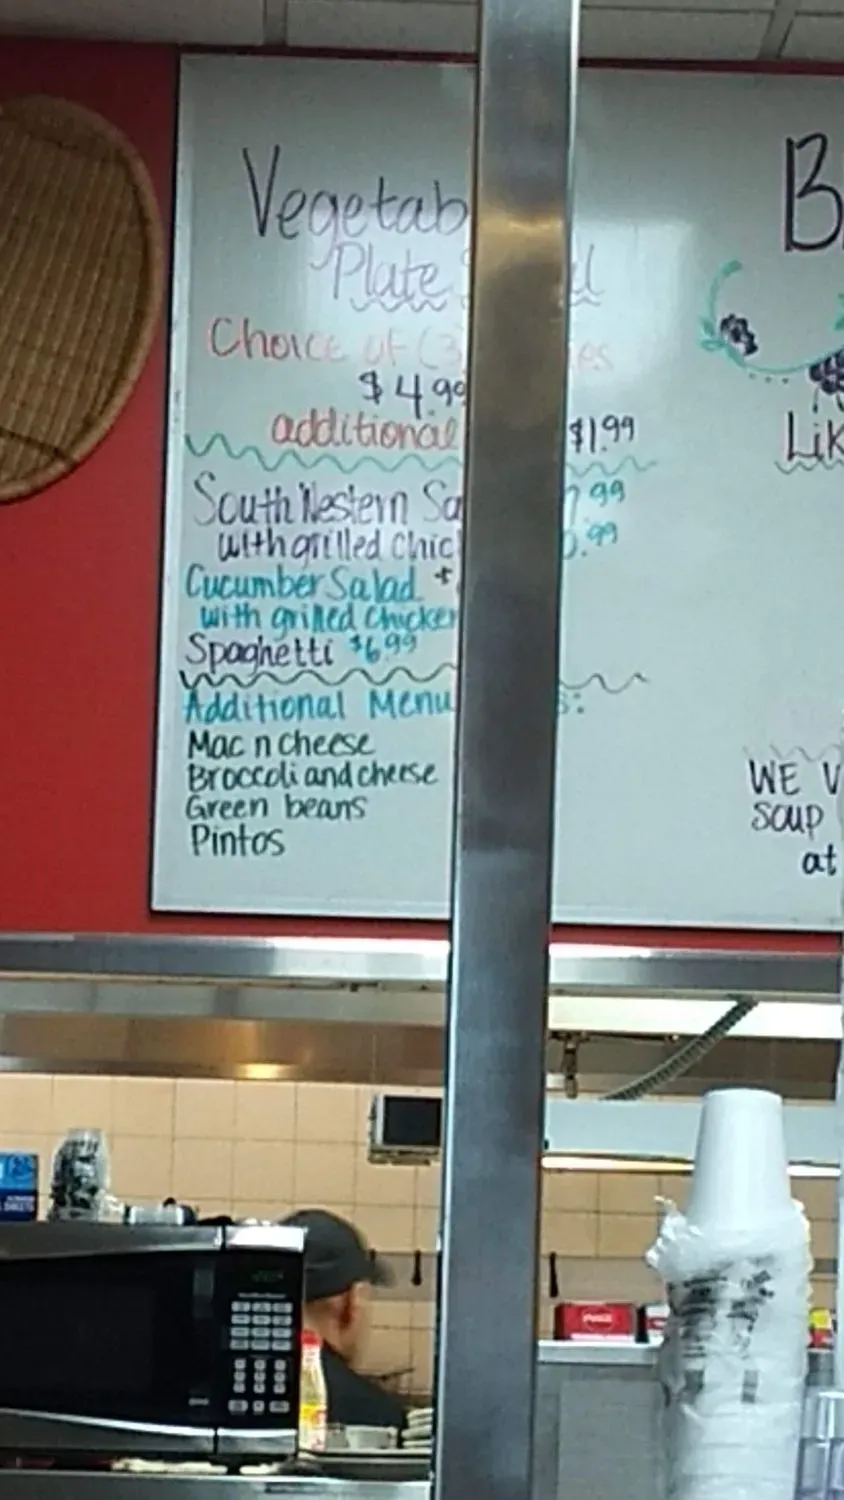 Vegetab
Plate
Choice of (3
$4.99
additional $1.99
South Western Sa 7.99
with grilled Chic .99
Cucumber Salad $
with grilled Chicken
Spaghetti $6.99
Additional Menu s:
Mac n cheese
Broccoli and cheese
Green beans
Pintos
B
Lik
WE V
soup
at